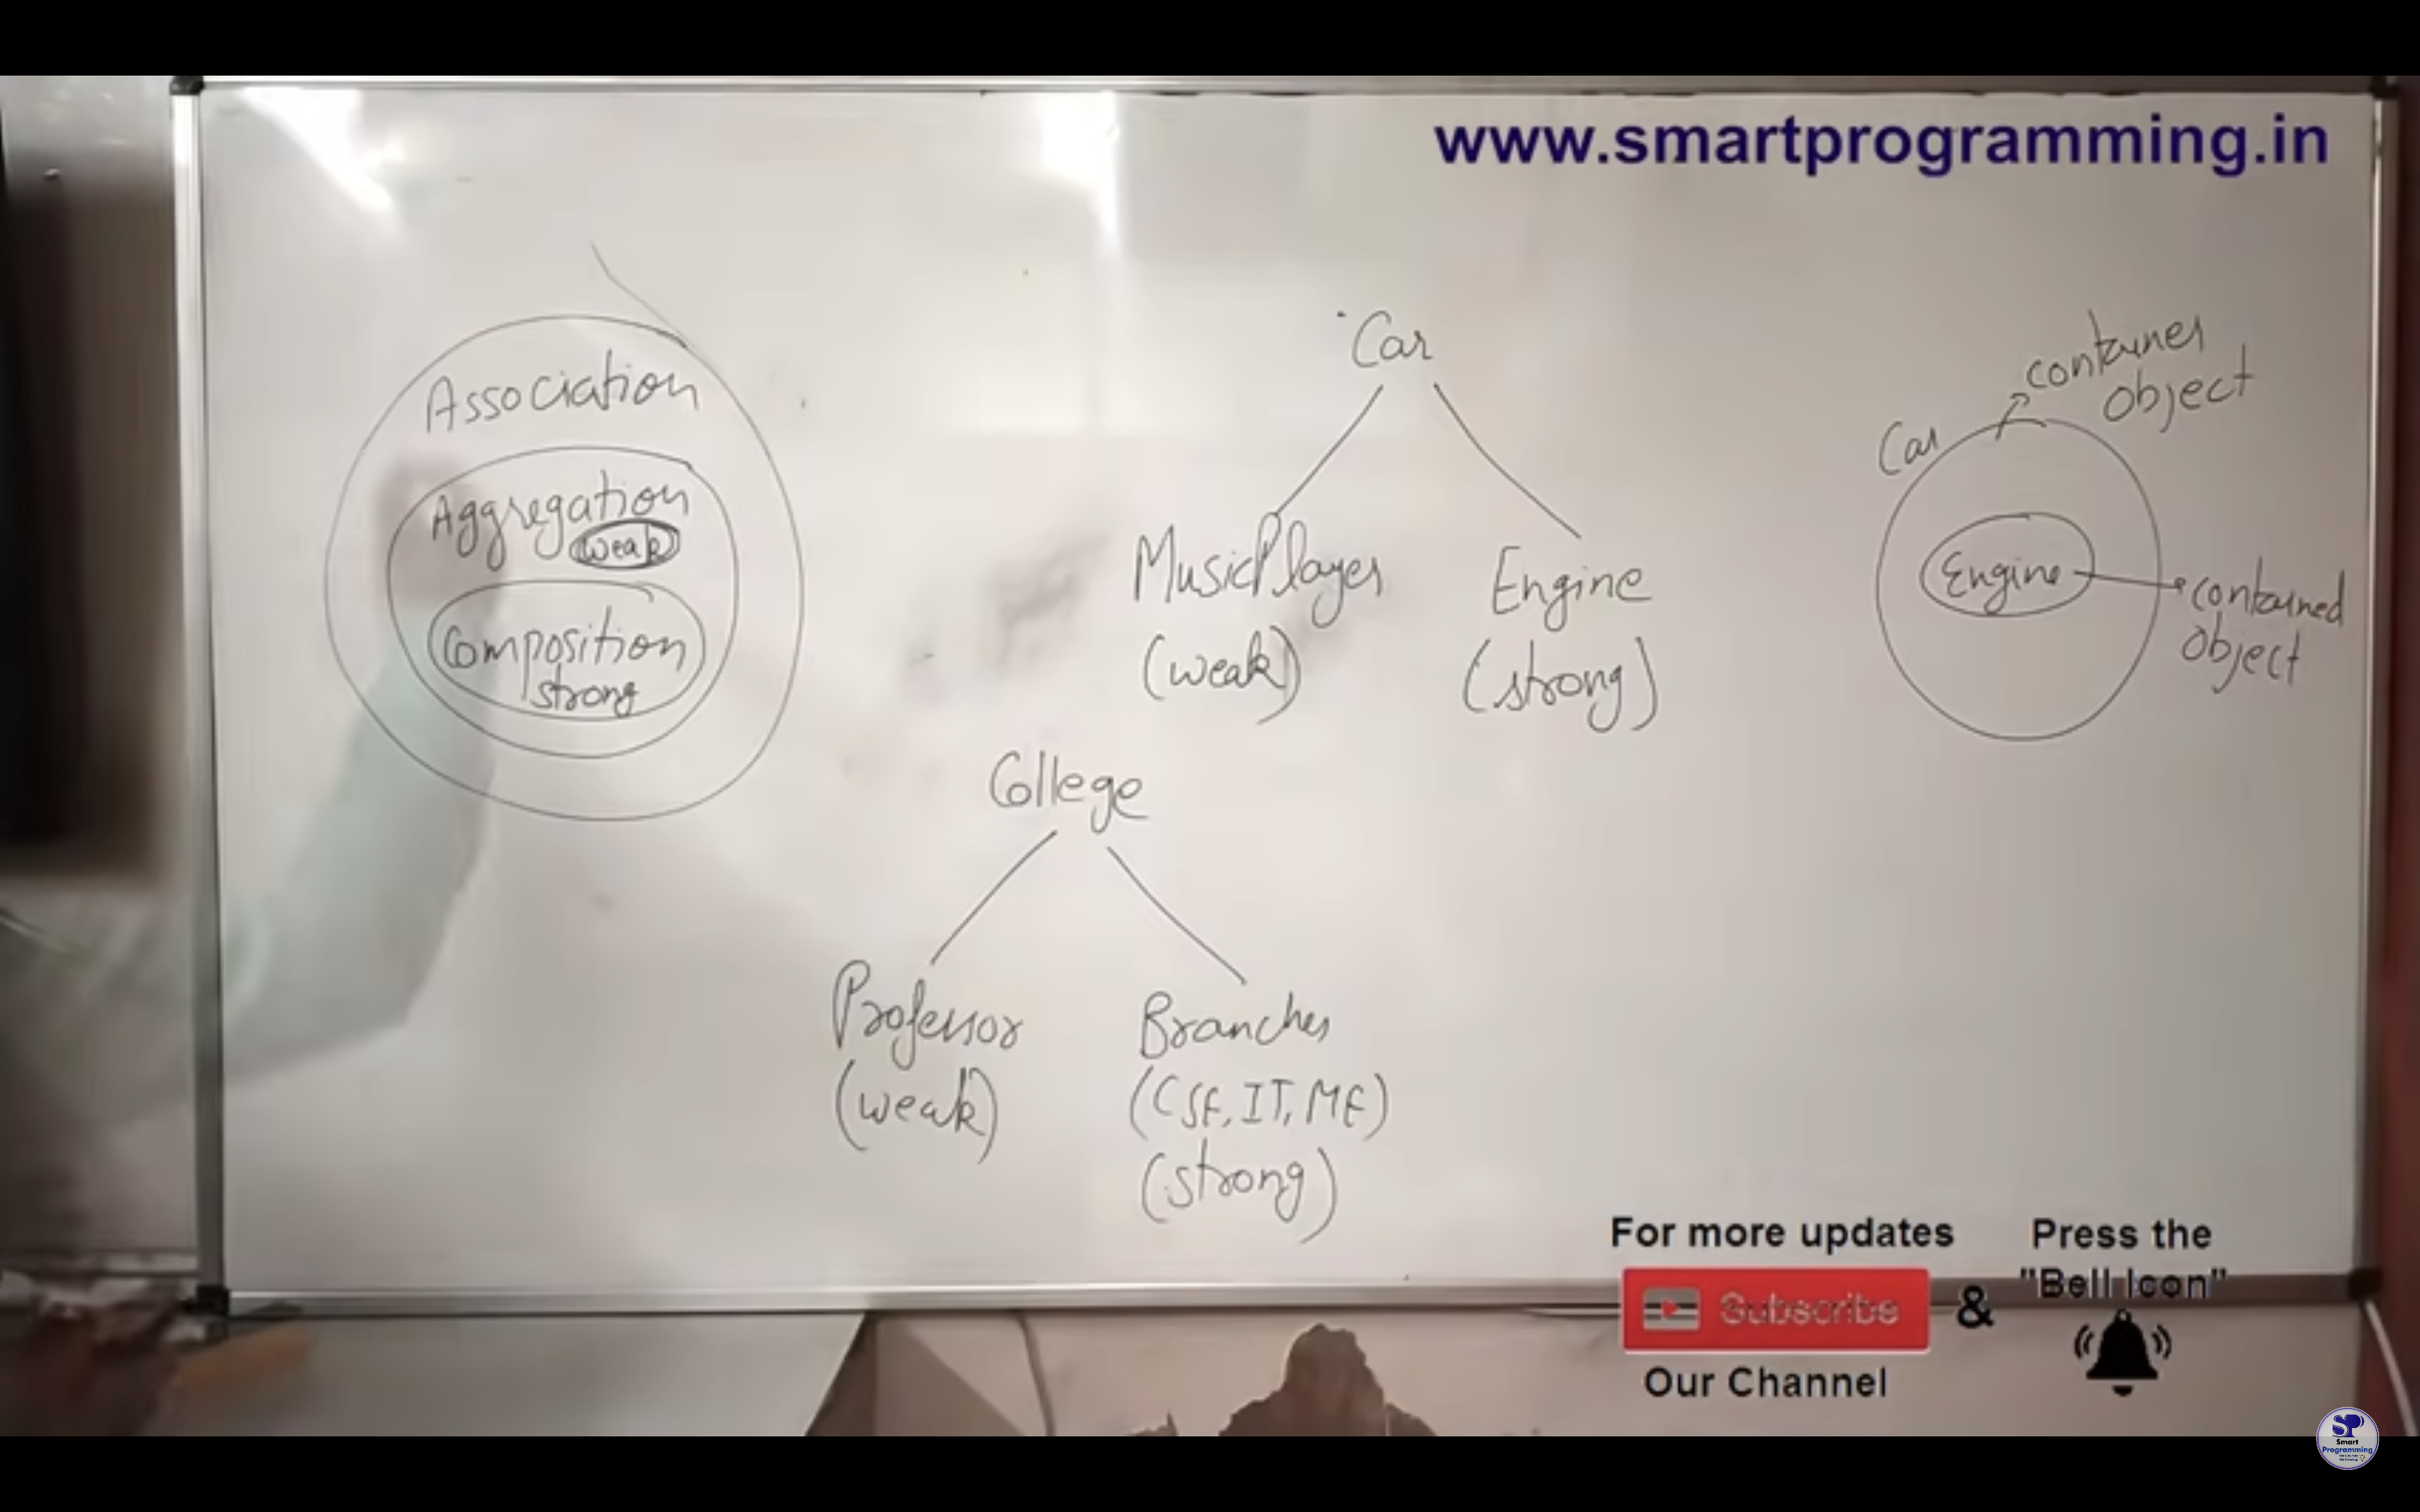 www.smartprogramming.in
Association
Aggregation
weak
Composition
strong
Car
MusicPlayer
(weak)
Engine
(strong)
Car
container
object
Engine
contained
object
College
Professor
(weak)
Branches
(CSE, IT, ME)
(strong)
For more updates
Subscribe
Our Channel
&
Press the
"Bell Icon"
SP
Smart
Programming